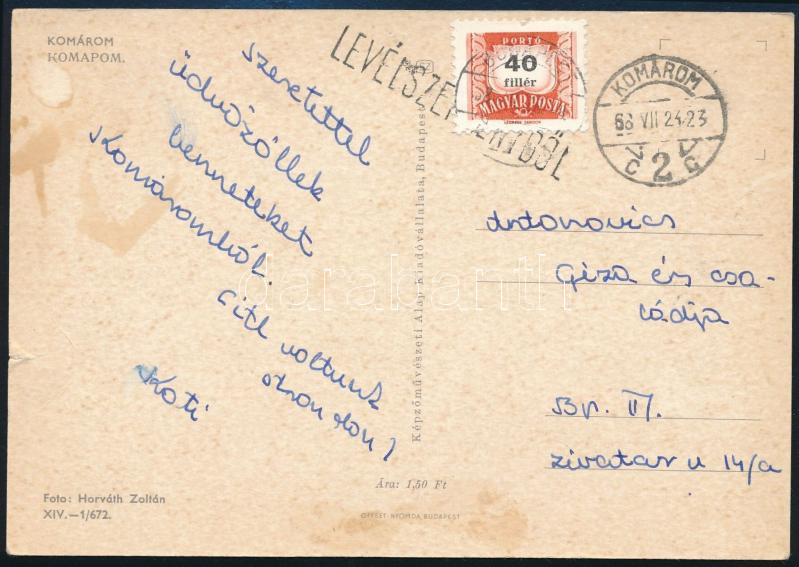 KOMÁROM
KОМАРОМ.
LEVÉLSZEKRÉNYBŐL
PORTÓ
40
fillér
MAGYAR POSTA
KOMÁROM
66 VII 24.23
2
szeretettel
üdvözöllek
benneteket
Komáromból.
voltunk
Kati
Antonovics
Géza és csa-
ládja
Bp. II.
Zivatar u 14/a
Képzőművészeti Alap Kiadóvállalata, Budapest
darabanth
Foto: Horváth Zoltán
XIV.—1/672.
Ára: 1,50 Ft
OFFSET-NYOMDA, BUDAPEST